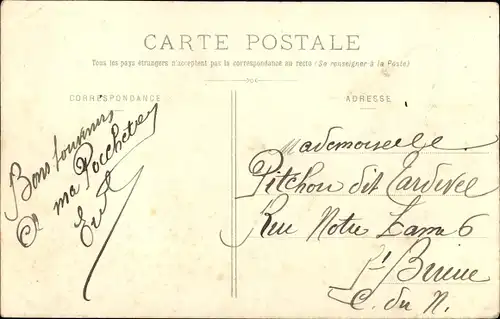 CARTE POSTALE
Tous les pays étrangers n'acceptent pas la correspondance au recto (Se renseigner à la Poste)
CORRESPONDANCE
ADRESSE
Bons souvenirs
A ma
Mademoiselle
Pitchon dit Cardivel
Rue Notre Dame 6
St Brieuc
C. du N.